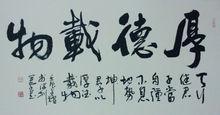 厚德載物
天行
健君
子當
自彊
不息
地勢
坤
君子以
厚德
載物